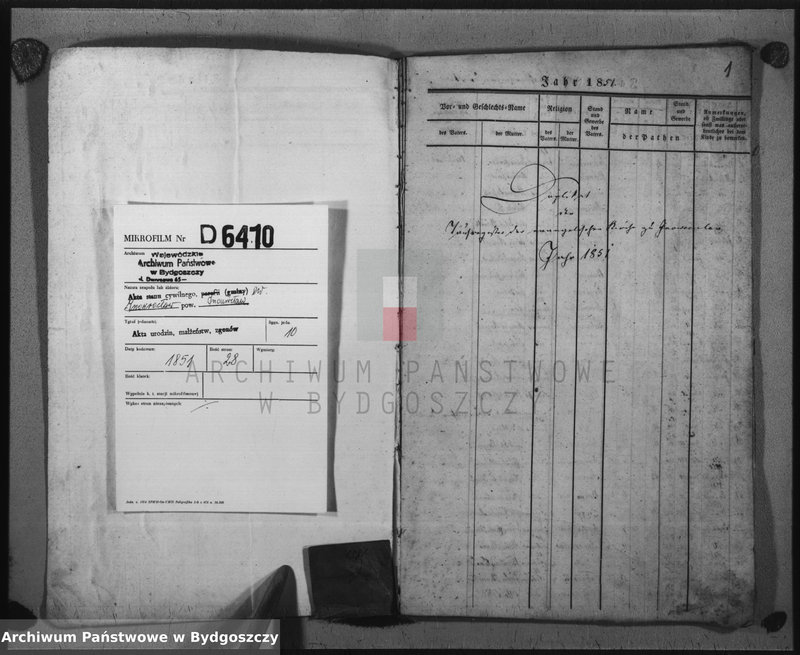 MIKROFILM Nr D 6410
Archiwum Wojewódzkie
Archiwum Państwowe
w Bydgoszczy
ul. Dworcowa 65
Nazwa zespołu lub zbioru:
Akta stanu cywilnego, parafii (gminy)
pow. Inowrocław
Tytuł jednostki:
Akta urodzin, małżeństw, zgonów
Sygn. jedn.
10
Daty końcowe:
1851
Ilość stron:
28
Wymiary:
Ilość klatek:
Wypełnia k. t. stacji mikrofilmowej
Wykaz stron nienagranych:
1
Jahr 1851
Vor- und Geschlechts-Name
Religion
Stand und Gewerbe des Vaters.
Name
Stand und Gewerbe
der Pathen
Anmerkungen, ob Zwillinge oder sonst was außerordentliches bei dem Kinde zu bemerken.
des Vaters.
der Mutter.
des Vaters.
der Mutter.
Duplikat
des
Taufregister der evangelischen Kirche zu Inowraclaw
Jahr 1851
ARCHIWUM PAŃSTWOWE
W BYDGOSZCZY
Archiwum Państwowe w Bydgoszczy